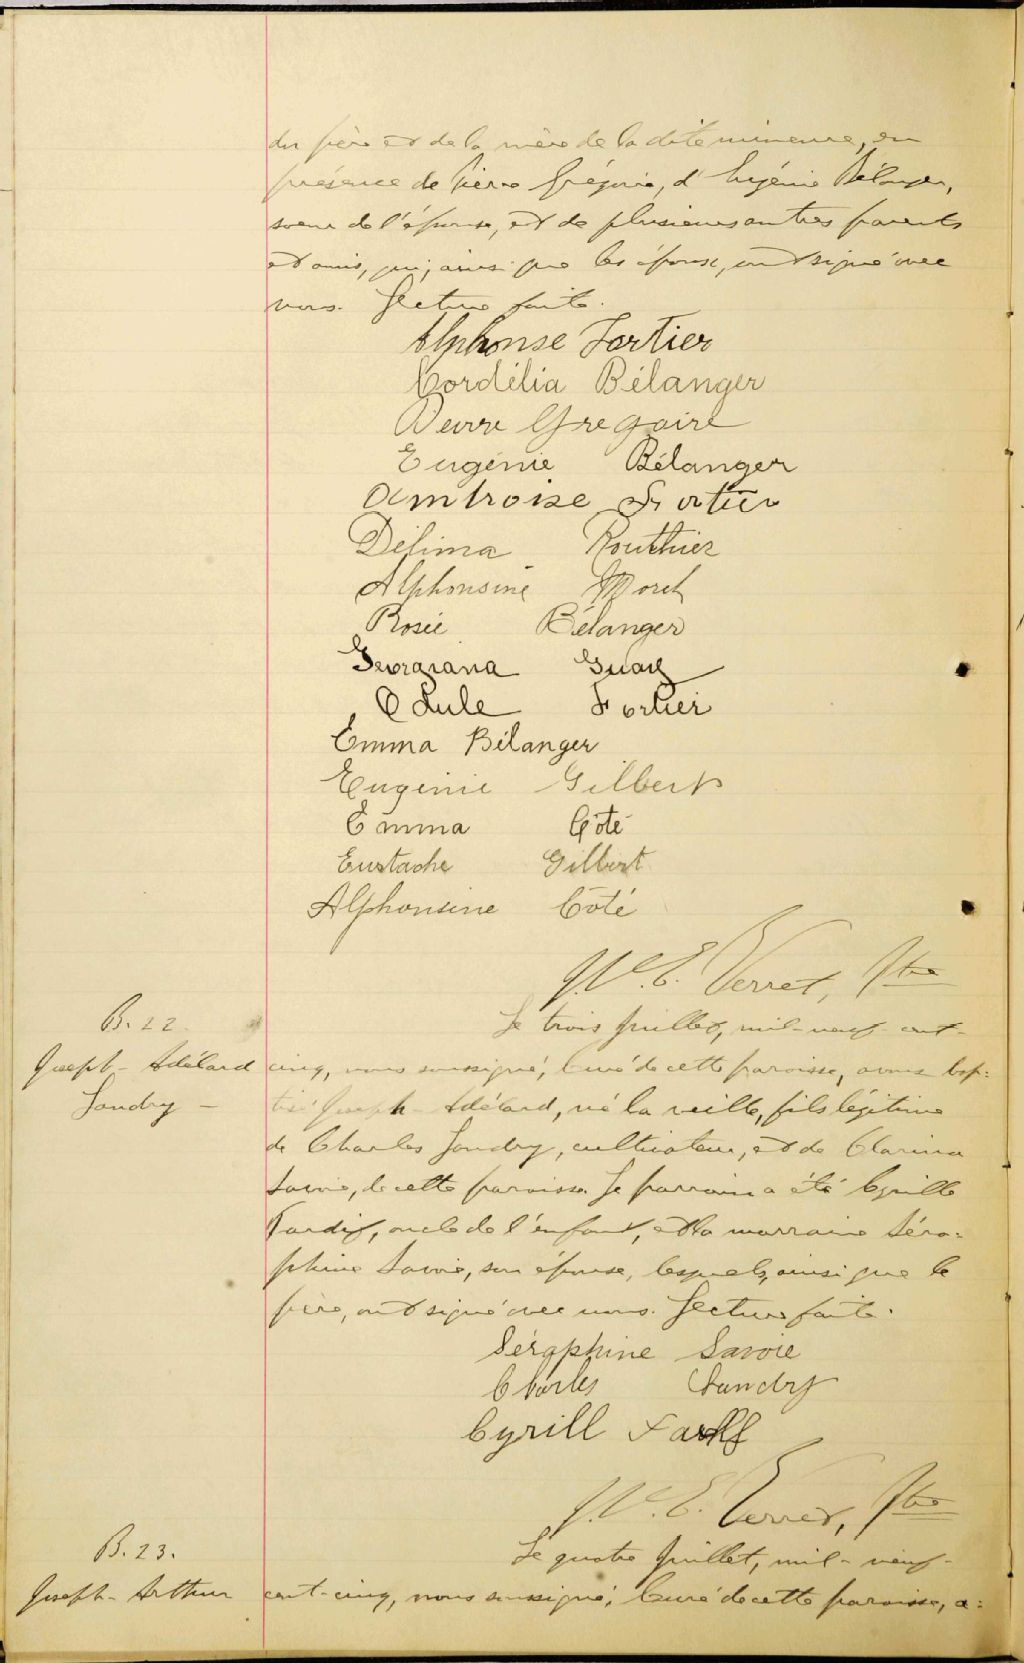 du père et de la mère de la dite mineure, en
présence de Pierre Grégoire, d'Eugénie Bélanger,
soeur de l'épouse, et de plusieurs autres parents
et amis, qui, ainsi que les époux, ont signé avec
nous. Lecture faite.
Alphonse Fortier
Cordélia Bélanger
Pierre Gregoire
Eugénie Bélanger
Ambroise Fortier
Délima Routhier
Alphonsine
Rosée Bélanger
Georgiana Guay
Odule Fortier
Emma Bélanger
Eugénie Gilbert
Emma Côté
Eustache Gilbert
Alphonsine Côté
E. Verret, Ptre
B. 22.
Joseph-Adélard
Landry
Le trois Juillet, mil-neuf-cent-
cinq, nous soussigné, Curé de cette paroisse, avons bap-
tisé Joseph-Adélard, né la veille, fils légitime
de Charles Landry, cultivateur, et de Clarina
Savoie, de cette paroisse. Le parrain a été Cyrille
Tardif, oncle de l'enfant, et la marraine Séra-
phine Savoie, son épouse, lesquels, ainsi que le
père, ont signé avec nous. Lecture faite.
Séraphine Savoie
Charles Landry
Cyrill Tardif
E. Verret, Ptre
B. 23.
Joseph-Arthur
Le quatre Juillet, mil-neuf-
cent-cinq, nous soussigné, Curé de cette paroisse, a-